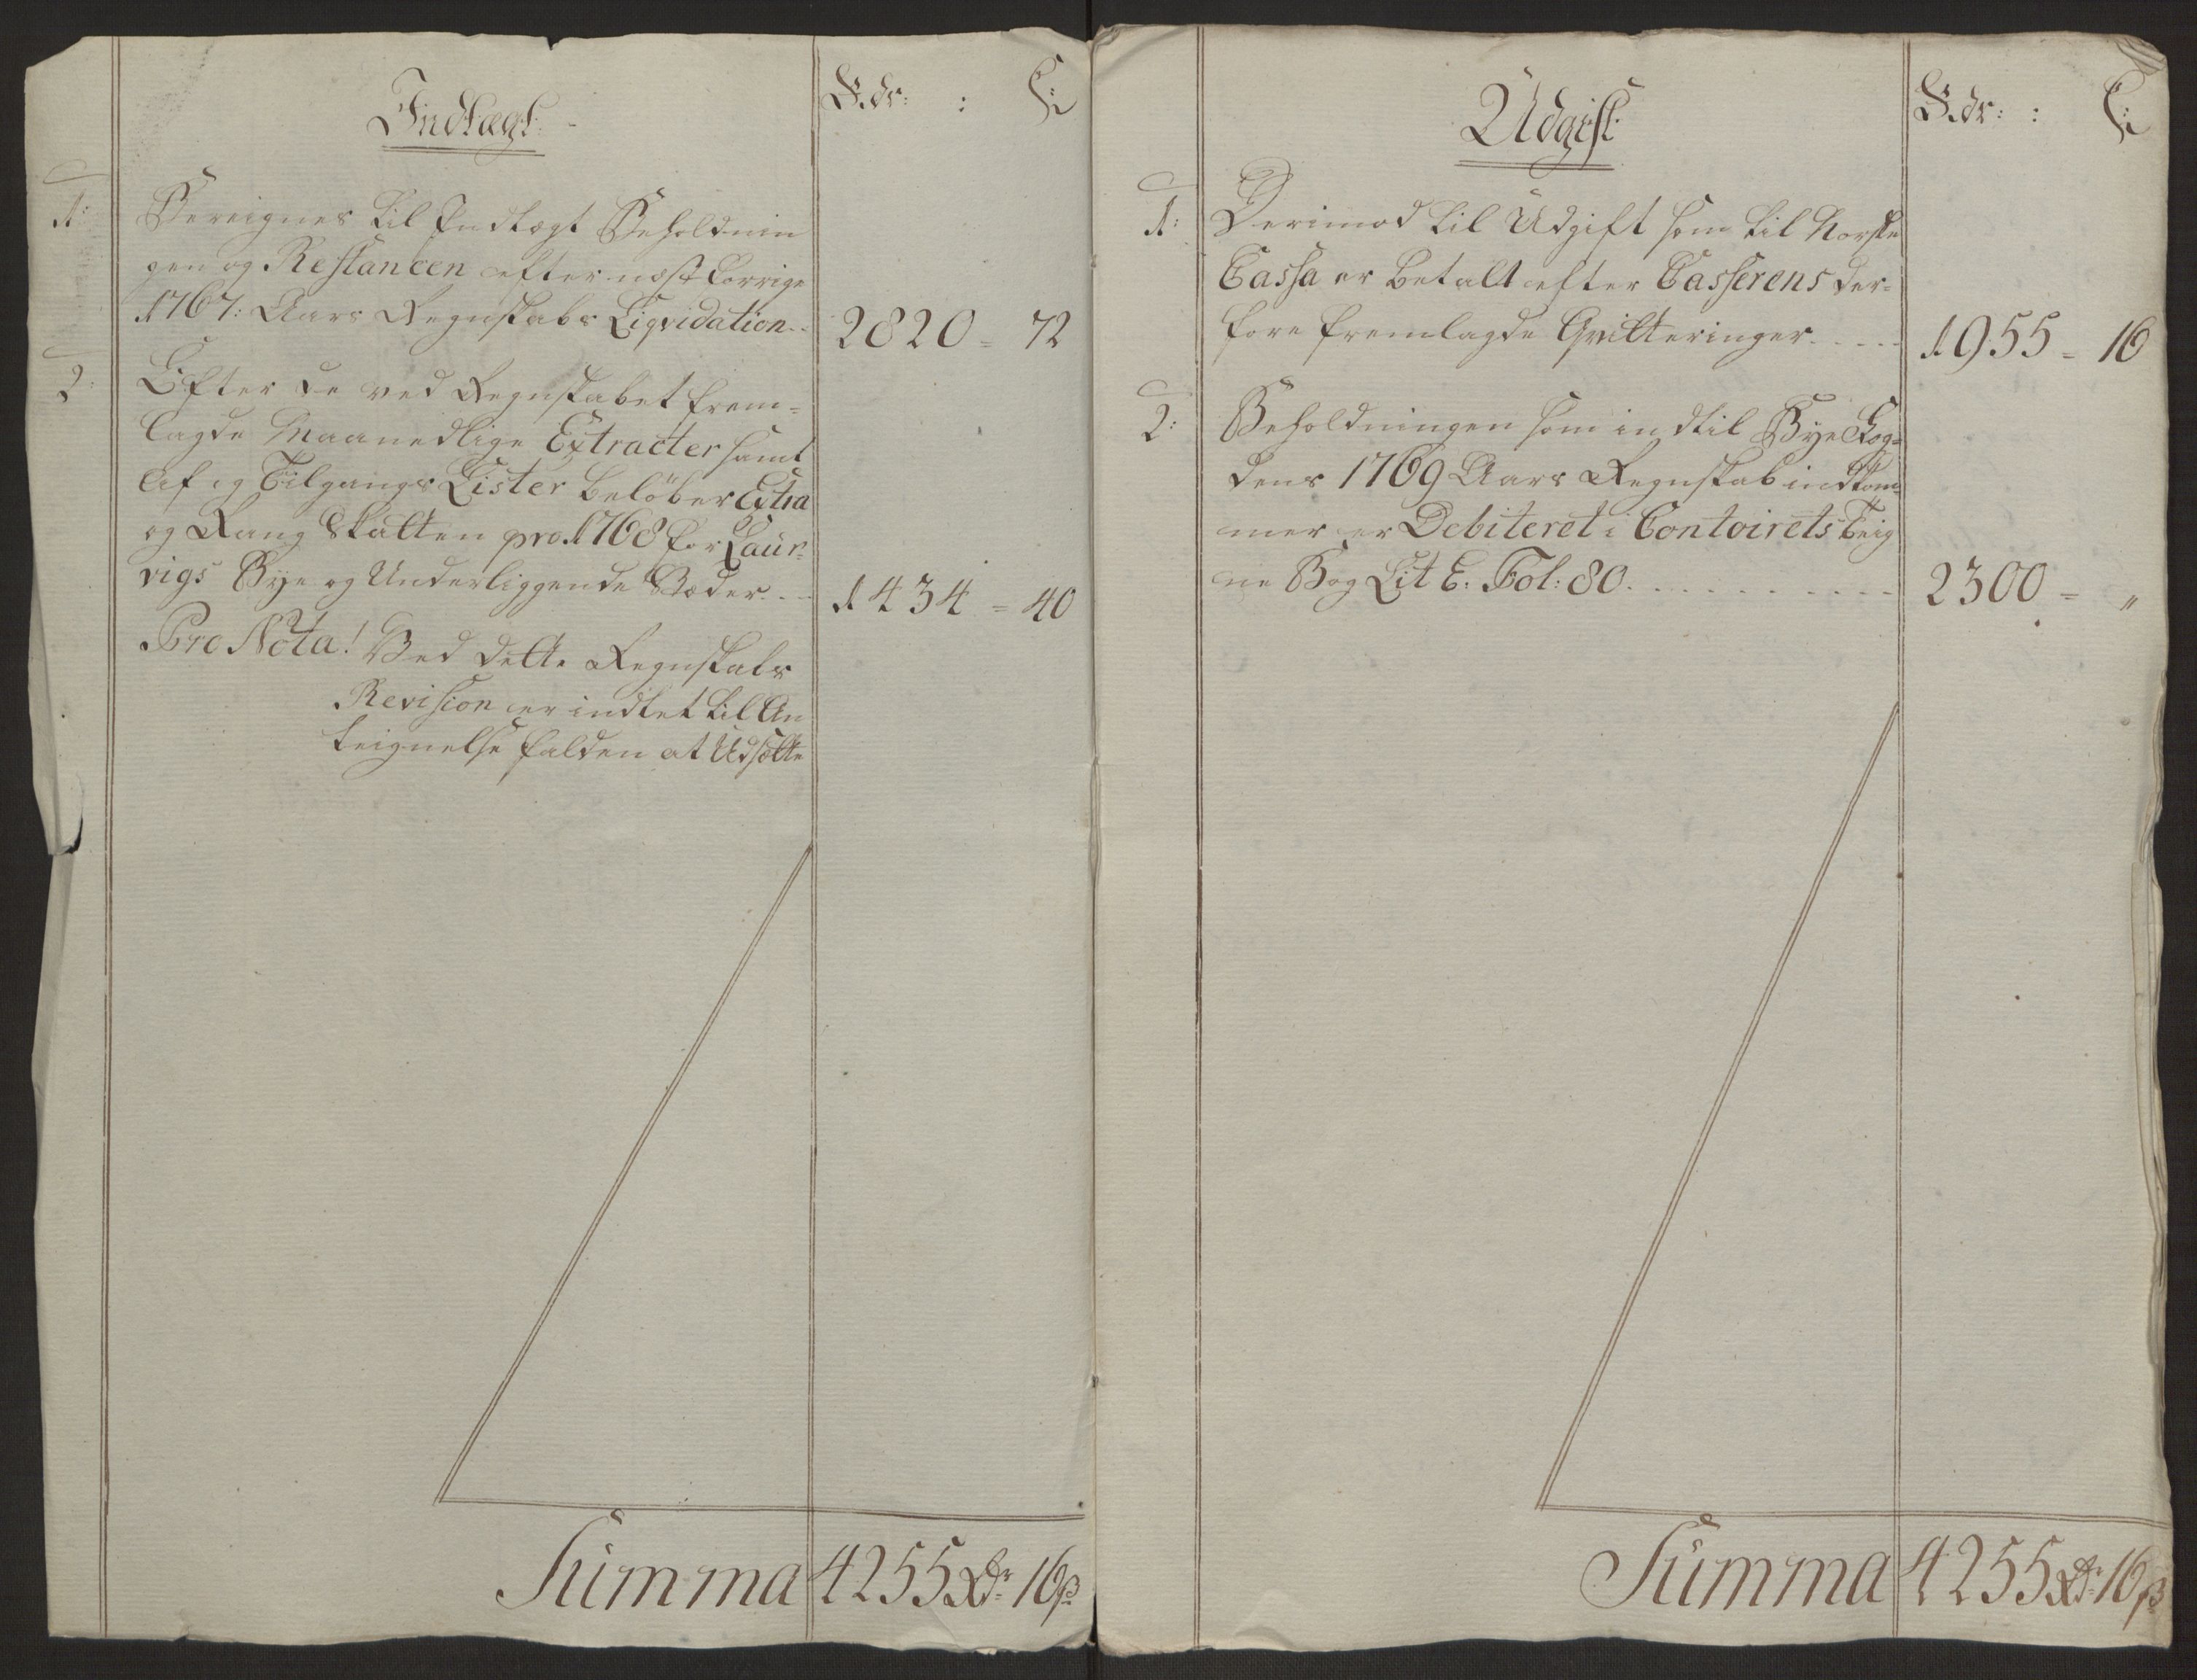 Indtægt.
R.dr: : ß:
1: Bereignes til Indtægt Beholdnin
gen og Restancen efter næst forrige
1767: Aars Regnskabs Liqvidation..
2820 = 72
2: Efter de ved Regnskabet frem-
lagde Maanedlige Extracter samt
Af og Tilgangs Lister beløber Extra
og Rang Skatten pro 1768 for Laur-
vigs Bye og Underliggende Stæder...
1434 = 40
Pro Nota! Ved dette Regnskabs
Revision er indtet til An
teignelse falden at Udsætte
Summa 4255 Rdr 16 ß
Udgift
R.dr: : ß:
1: Derimod til Udgift som til Norske
Cassa er betalt efter Casserens der-
fore fremlagde Qvitteringer.....
1955 = 16
2: Beholdningen som indtil Bye Fog-
dens 1769 Aars Regnskab indkom-
mer er Debiteret i Contoirets Teig
ne Bog Lit E. Fol: 80..........
2300 = "
Summa 4255 Rdr 16 ß